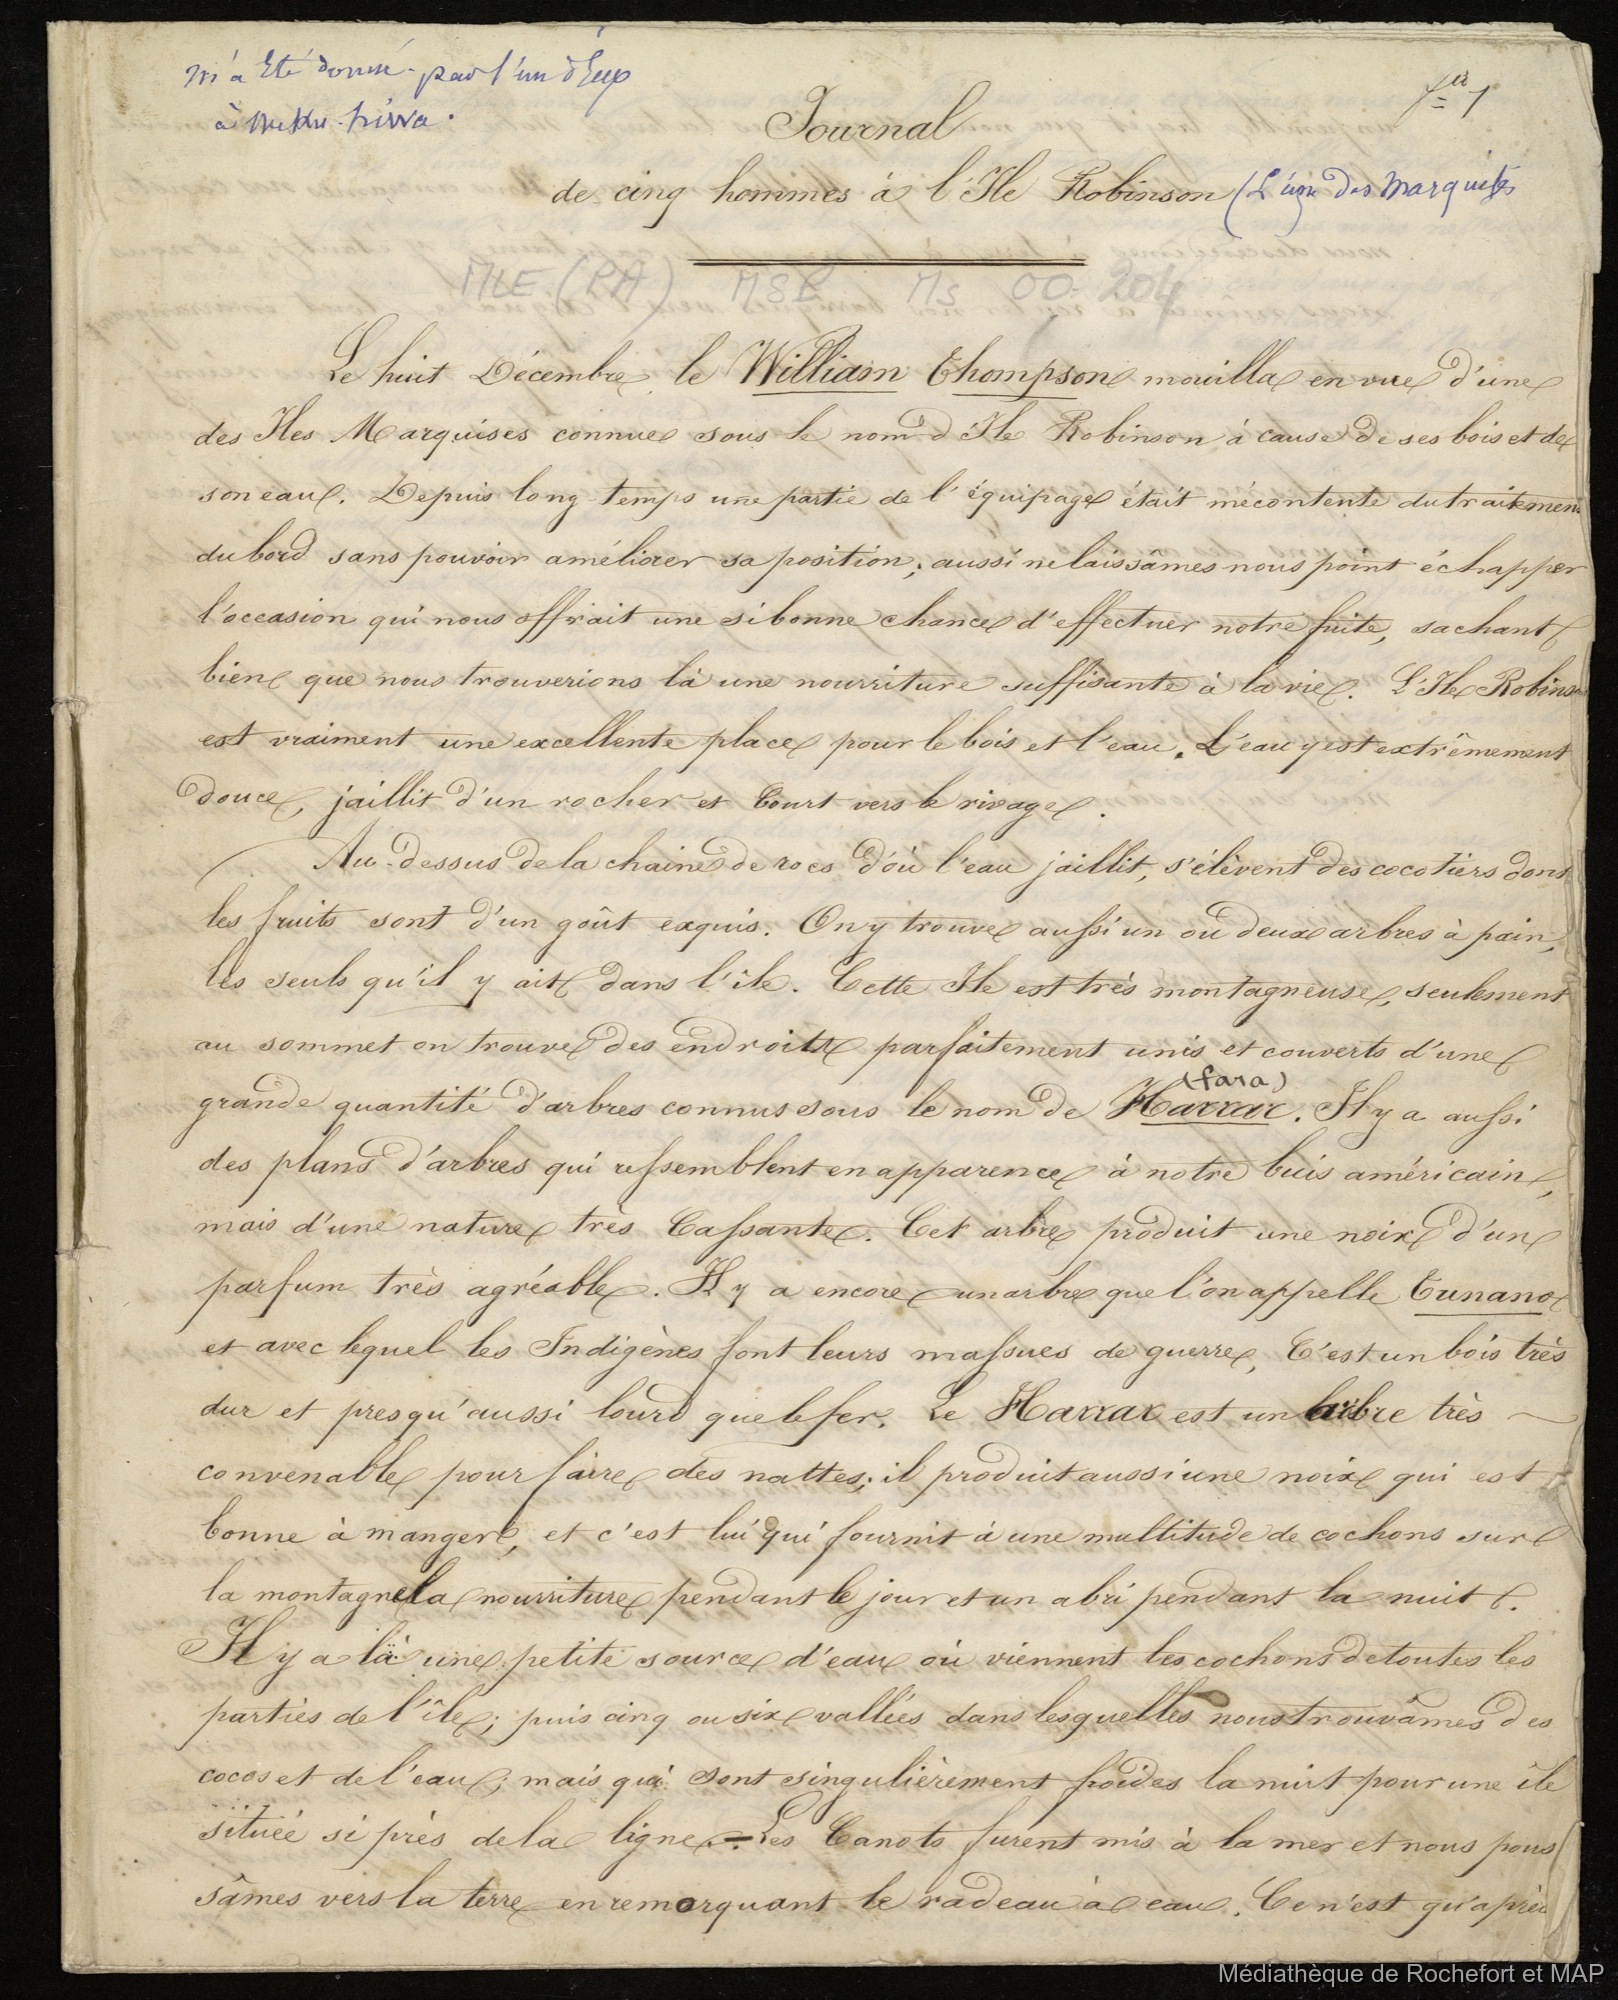 m'a été donné par l'un d'Eux
à Nuku-hiva.
f.lle 1
Journal
de cinq hommes à l'Ile Robinson (L'une des Marquises
MLE (PA) MSL Ms 00-204
Le huit Décembre, le William Thompson mouilla en vue d'une
des Iles Marquises connue sous le nom d'Ile Robinson à cause de ses bois et de
son eau. Depuis long-temps une partie de l'équipage était mécontente du traitement
du bord sans pouvoir améliorer sa position; aussi ne laissâmes nous point échapper
l'occasion qui nous offrait une si bonne chance d'effectuer notre fuite, sachant
bien que nous trouverions là une nourriture suffisante à la vie. L'Ile Robinson
est vraiment une excellente place pour le bois et l'eau. L'eau y est extrêmement
douce, jaillit d'un rocher et Court vers le rivage.
Au-dessus de la chaine de rocs d'où l'eau jaillit, s'élèvent des cocotiers dont
les fruits sont d'un goût exquis. On y trouve aussi un ou deux arbres à pain,
les seuls qu'il y ait dans l'île. Cette Ile est très montagneuse, seulement
au sommet on trouve des endroits parfaitement unis et couverts d'une
(fara)
grande quantité d'arbres connus sous le nom de Harrar. Il y a aussi
des plans d'arbres qui ressemblent en apparence à notre buis américain,
mais d'une nature très Cassante. Cet arbre produit une noix d'un
parfum très agréable. Il y a encore un arbre que l'on appelle Tunano
et avec lequel les Indigènes font leurs massues de guerre, C'est un bois très
dur et presqu'aussi lourd que le fer. Le Harrar est un arbre très
convenable pour faire des nattes; il produit aussi une noix qui est
bonne à manger, et c'est lui qui fournit à une multitude de cochons sur
la montagne la nourriture pendant le jour et un abri pendant la nuit.
Il y a là une petite source d'eau où viennent les cochons de toutes les
parties de l'île; puis cinq ou six vallées dans lesquelles nous trouvâmes des
cocos et de l'eau; mais qui sont singulièrement froides la nuit pour une île
située si près de la ligne. — Les Canots furent mis à la mer et nous pous
sâmes vers la terre en remorquant le radeau à eau. Ce n'est qu'après
Médiathèque de Rochefort et MAP